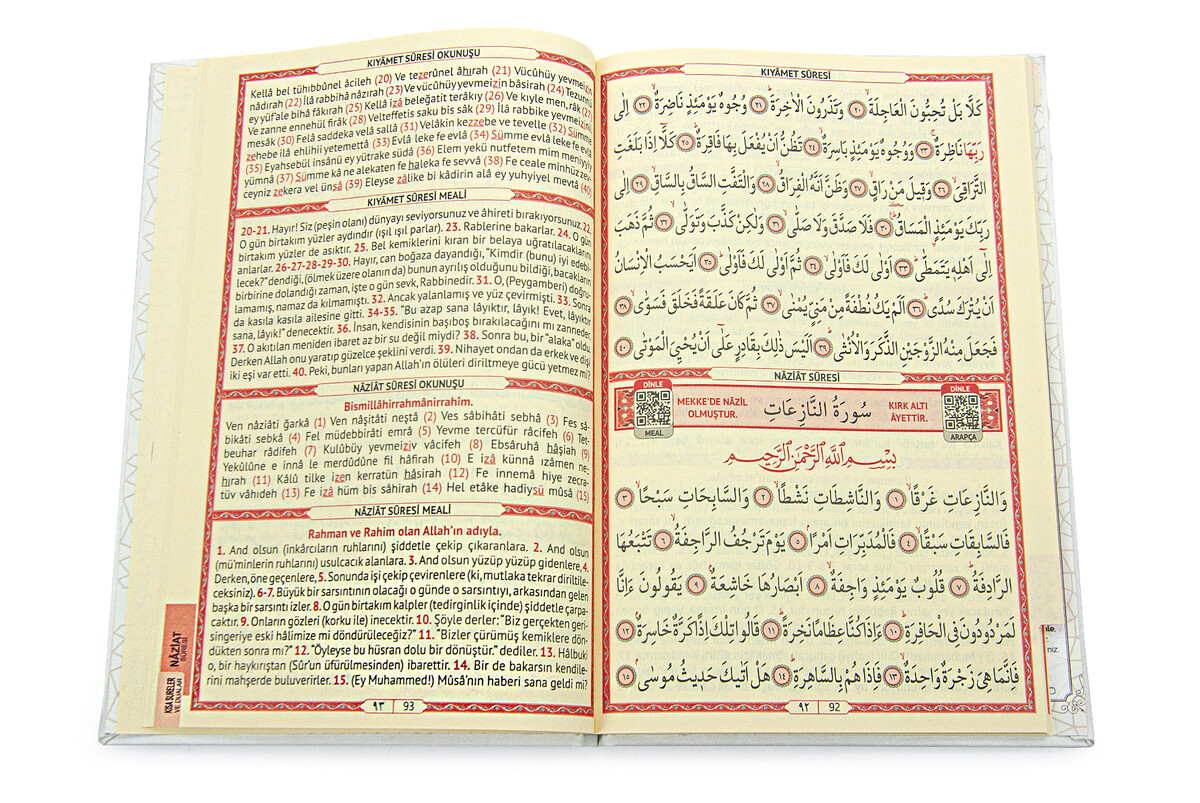 KIYÂMET SÛRESİ
كَلَّا بَلْ تُحِبُّونَ الْعَاجِلَةَۙ ﴿٢٠﴾ وَتَذَرُونَ الْاٰخِرَةَۜ ﴿٢١﴾ وُجُوهٌ يَوْمَئِذٍ نَاضِرَةٌۙ ﴿٢٢﴾ اِلٰى
رَبِّهَا نَاظِرَةٌۚ ﴿٢٣﴾ وَوُجُوهٌ يَوْمَئِذٍ بَاسِرَةٌۙ ﴿٢٤﴾ تَظُنُّ اَنْ يُفْعَلَ بِهَا فَاقِرَةٌۜ ﴿٢٥﴾ كَلَّٓا اِذَا بَلَغَتِ
التَّرَاقِيَۙ ﴿٢٦﴾ وَقِيلَ مَنْ رَاقٍۙ ﴿٢٧﴾ وَظَنَّ اَنَّهُ الْفِرَاقُۙ ﴿٢٨﴾ وَالْتَفَّتِ السَّاقُ بِالسَّاقِۙ ﴿٢٩﴾ اِلٰى
رَبِّكَ يَوْمَئِذٍ الْمَسَاقُۜ ﴿٣٠﴾ فَلَا صَدَّقَ وَلَا صَلّٰىۙ ﴿٣١﴾ وَلٰكِنْ كَذَّبَ وَتَوَلّٰىۙ ﴿٣٢﴾ ثُمَّ ذَهَبَ
اِلٰٓى اَهْلِه۪ يَتَمَطّٰىۜ ﴿٣٣﴾ اَوْلٰى لَكَ فَاَوْلٰىۙ ﴿٣٤﴾ ثُمَّ اَوْلٰى لَكَ فَاَوْلٰىۜ ﴿٣٥﴾ اَيَحْسَبُ الْاِنْسَانُ
اَنْ يُتْرَكَ سُدًىۜ ﴿٣٦﴾ اَلَمْ يَكُ نُطْفَةً مِنْ مَنِيٍّ يُمْنٰىۙ ﴿٣٧﴾ ثُمَّ كَانَ عَلَقَةً فَخَلَقَ فَسَوّٰىۙ ﴿٣٨﴾
فَجَعَلَ مِنْهُ الزَّوْجَيْنِ الذَّكَرَ وَالْاُنْثٰىۜ ﴿٣٩﴾ اَلَيْسَ ذٰلِكَ بِقَادِرٍ عَلٰٓى اَنْ يُحْيِيَ الْمَوْتٰى ﴿٤٠﴾
NÂZİÂT SÛRESİ
DİNLE
MEAL
MEKKE'DE NÂZİL
OLMUŞTUR.
سُورَةُ النَّازِعَاتِ
KIRK ALTI
ÂYETTİR.
DİNLE
ARAPÇA
بِسْمِ اللّٰهِ الرَّحْمٰنِ الرَّح۪يمِ
وَالنَّازِعَاتِ غَرْقًاۙ ﴿١﴾ وَالنَّاشِطَاتِ نَشْطًاۙ ﴿٢﴾ وَالسَّابِحَاتِ سَبْحًاۙ ﴿٣﴾
فَالسَّابِقَاتِ سَبْقًاۙ ﴿٤﴾ فَالْمُدَبِّرَاتِ اَمْرًاۢ ﴿٥﴾ يَوْمَ تَرْجُفُ الرَّاجِفَةُۙ ﴿٦﴾ تَتْبَعُهَا
الرَّادِفَةُۜ ﴿٧﴾ قُلُوبٌ يَوْمَئِذٍ وَاجِفَةٌۙ ﴿٨﴾ اَبْصَارُهَا خَاشِعَةٌۢ ﴿٩﴾ يَقُولُونَ ءَاِنَّا
لَمَرْدُودُونَ فِي الْحَافِرَةِۜ ﴿١٠﴾ ءَاِذَا كُنَّا عِظَامًا نَخِرَةًۜ ﴿١١﴾ قَالُوا تِلْكَ اِذًا كَرَّةٌ خَاسِرَةٌۢ ﴿١٢﴾
فَاِنَّمَا هِيَ زَجْرَةٌ وَاحِدَةٌۙ ﴿١٣﴾ فَاِذَا هُمْ بِالسَّاهِرَةِۜ ﴿١٤﴾ هَلْ اَتٰيكَ حَد۪يثُ مُوسٰىۢ ﴿١٥﴾
٩٢ 92
KIYÂMET SÛRESİ OKUNUŞU
Kellâ bel tühıbbunel âcileh (20) Ve tezerûnel âhırah (21) Vücûhüy yevmeizin
nâdırah (22) İlâ rabbihâ nâzırah (23) Ve vücûhüy yevmeizin bâsirah (24) Tezunnü
ey yüf'ale bihâ fâkırah (25) Kellâ izâ beleğatit terâkıy (26) Ve kıyle men, râk (27)
Ve zanne ennehül firâk (28) Velteffetis saku bis sâk (29) İlâ rabbike yevmeizinil
mesâk (30) Felâ saddeka velâ sallâ (31) Velâkin kezzebe ve tevelle (32) Sümme
zehebe ilâ ehlihii yetemettâ (33) Evlâ leke fe evlâ (34) Sümme evlâ leke fe evlâ
(35) Eyahsebül insânü ey yütrake südâ (36) Elem yekü nutfetem mim meniyyiy
yümnâ (37) Sümme kâ ne alekaten fe haleka fe sevvâ (38) Fe ceale minhüz zev-
ceyniz zekera vel ünsâ (39) Eleyse zâlike bi kâdirin alâ ey yuhyiyel mevtâ (40)
KIYÂMET SÛRESİ MEALİ
20-21. Hayır! Siz (peşin olanı) dünyayı seviyorsunuz ve âhireti bırakıyorsunuz. 22.
O gün birtakım yüzler aydındır (ışıl ışıl parlar). 23. Rablerine bakarlar. 24. O gün
birtakım yüzler de asıktır. 25. Bel kemiklerini kıran bir belaya uğratılacaklarını
anlarlar. 26-27-28-29-30. Hayır, can boğaza dayandığı, "Kimdir (bunu) iyi edebi-
lecek?" dendiği, (ölmek üzere olanın da) bunun ayrılış olduğunu bildiği, bacakların
birbirine dolandığı zaman, işte o gün sevk, Rabbinedir. 31. O, (Peygamberi) doğru-
lamamış, namaz da kılmamıştı. 32. Ancak yalanlamış ve yüz çevirmişti. 33. Sonra
da kasıla kasıla ailesine gitti. 34-35. "Bu azap sana lâyıktır, lâyık! Evet, lâyıktır
sana, lâyık!" denecektir. 36. İnsan, kendisinin başıboş bırakılacağını mı zanneder.
37. O akıtılan meniden ibaret az bir su değil miydi? 38. Sonra bu, bir "alaka" oldu.
Derken Allah onu yaratıp güzelce şeklini verdi. 39. Nihayet ondan da erkek ve dişi
iki eşi var etti. 40. Peki, bunları yapan Allah'ın ölüleri diriltmeye gücü yetmez mi?
NÂZİÂT SÛRESİ OKUNUŞU
Bismillâhirrahmânirrahîm.
Ven nâziâti ğarkâ (1) Ven nâşitâti neştâ (2) Ves sâbihâti sebhâ (3) Fes sâ-
bikâti sebkâ (4) Fel müdebbirâti emrâ (5) Yevme tercüfür râcifeh (6) Tet-
beuhar râdifeh (7) Kulûbüy yevmeiziv vâcifeh (8) Ebsâruhâ hâşiah (9)
Yekûlûne e innâ le merdûdûne fil hâfirah (10) E izâ künnâ ızâmen ne-
hırah (11) Kâlû tilke izen kerratün hâsirah (12) Fe innemâ hiye zecra-
tüv vâhıdeh (13) Fe izâ hüm bis sâhirah (14) Hel etâke hadiysü mûsâ (15)
NÂZİÂT SÛRESİ MEALİ
Rahman ve Rahim olan Allah'ın adıyla.
1. And olsun (inkârcıların ruhlarını) şiddetle çekip çıkaranlara. 2. And olsun
(mü'minlerin ruhlarını) usulcacık alanlara. 3. And olsun yüzüp yüzüp gidenlere, 4.
Derken, öne geçenlere, 5. Sonunda işi çekip çevirenlere (ki, mutlaka tekrar diriltile-
ceksiniz). 6-7. Büyük bir sarsıntının olacağı o günde o sarsıntıyı, arkasından gelen
başka bir sarsıntı izler. 8. O gün birtakım kalpler (tedirginlik içinde) şiddetle çarpa-
caktır. 9. Onların gözleri (korku ile) inecektir. 10. Şöyle derler: "Biz gerçekten geri-
singeriye eski hâlimize mi döndürüleceğiz?" 11. "Bizler çürümüş kemiklere dön-
dükten sonra mı?" 12. "Öyleyse bu hüsran dolu bir dönüştür." dediler. 13. Hâlbuki
o, bir haykırıştan (Sûr'un üfürülmesinden) ibarettir. 14. Bir de bakarsın kendile-
rini mahşerde buluverirler. 15. (Ey Muhammed!) Mûsâ'nın haberi sana geldi mi?
٩٣ 93
NÂZİÂT
SÛRESİ
KISA SURELER
VE DUALAR